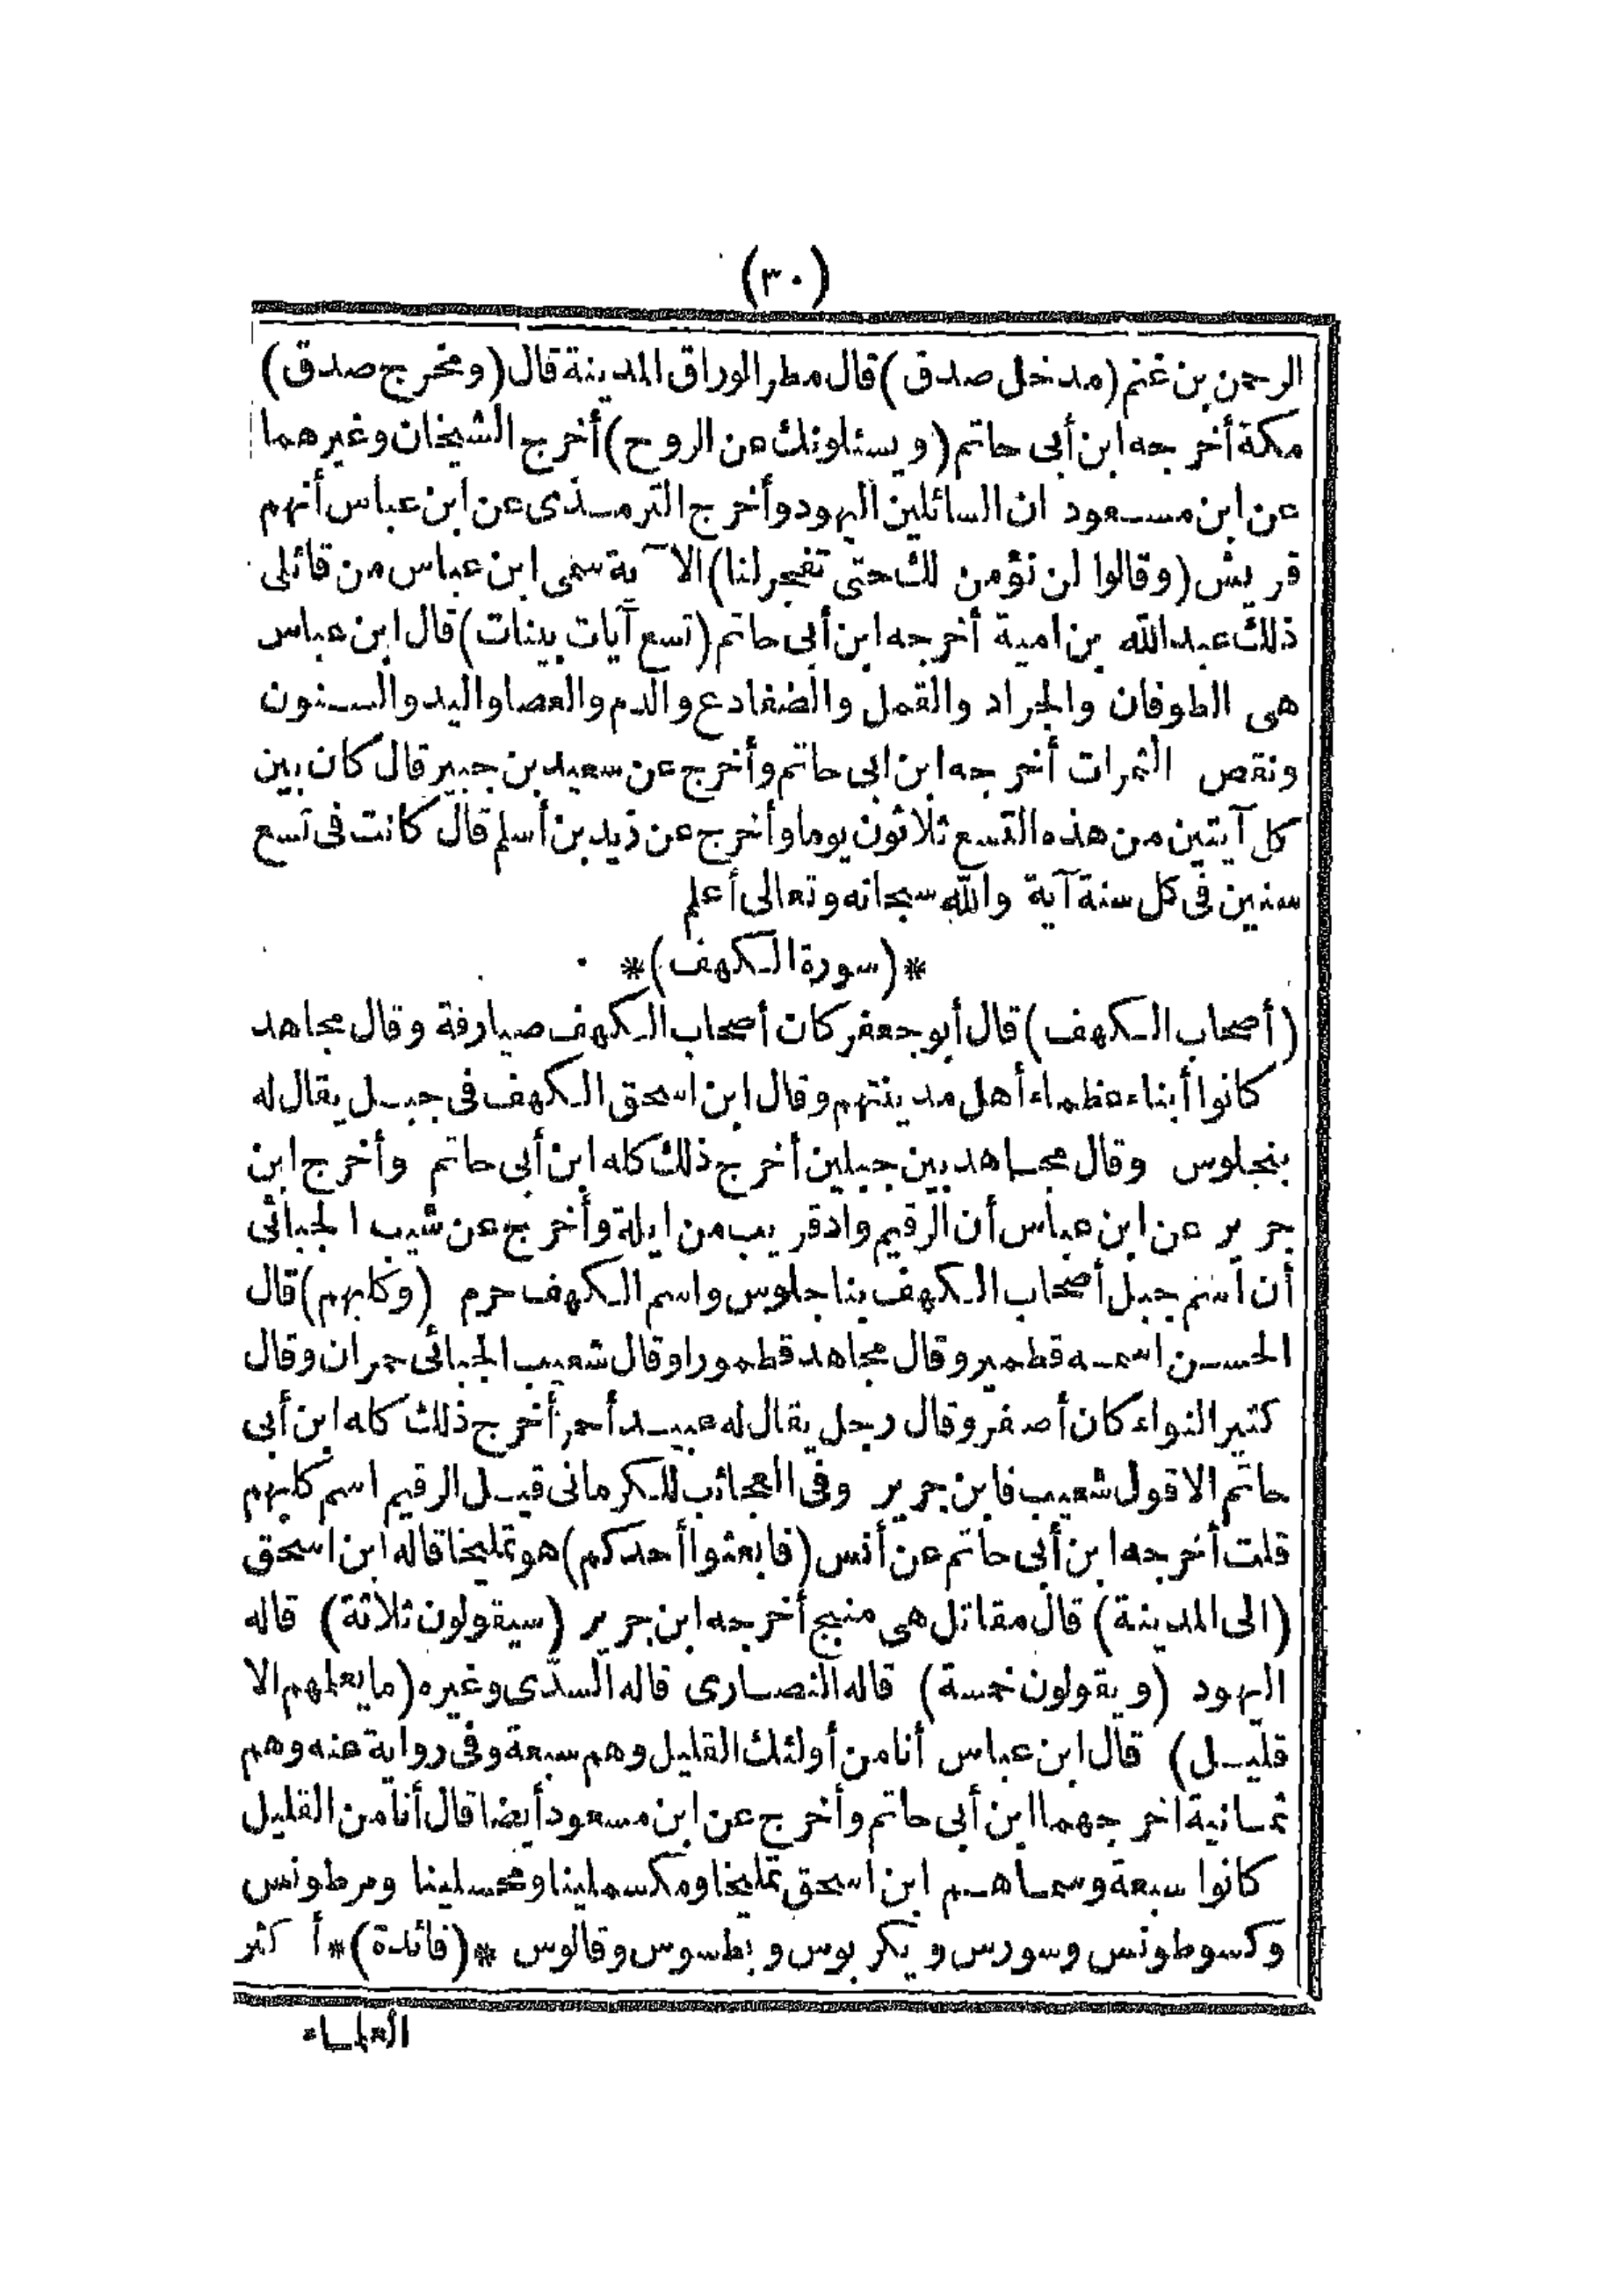 (٣٠)
الرحمن بن غنم (مدخل صدق) قال مطر الوراق المدينة قال (ومخرج صدق)
مكة أخرجه ابن أبى حاتم (ويسئلونك عن الروح) أخرج الشيخان وغيرهما
عن ابن مسعود ان السائلين اليهود وأخرج الترمذى عن ابن عباس أنهم
قريش (وقالوا لن نؤمن لك حتى تفجر لنا) الآية سمى ابن عباس من قائلى
ذلك عبد الله بن امية أخرجه ابن أبى حاتم (تسع آيات بينات) قال ابن عباس
هى الطوفان والجراد والقمل والضفادع والدم والعصا واليد والسنون
ونقص الثمرات أخرجه ابن ابى حاتم وأخرج عن سعيد بن جبير قال كان بين
كل آيتين من هذه التسع ثلاثون يوما وأخرج عن زيد بن أسلم قال كانت فى تسع
سنين فى كل سنة آية والله سبحانه وتعالى أعلم
*(سورة الكهف)*
(أصحاب الكهف) قال أبو جعفر كان أصحاب الكهف صيارفة وقال مجاهد
كانوا أبناء عظماء أهل مدينتهم وقال ابن اسحق الكهف فى جبل يقال له
بنجلوس وقال مجاهد بين جبلين أخرج ذلك كله ابن أبى حاتم وأخرج ابن
جرير عن ابن عباس أن الرقيم واد قريب من ايلة وأخرج عن شيب الجبائى
أن اسم جبل أصحاب الكهف بناجلوس واسم الكهف حرم (وكلبهم) قال
الحسن اسمه قطمير وقال مجاهد قطمورا وقال شعيب الجبائى حمران وقال
كثير النواء كان أصفر وقال رجل يقال له عبيد أحمر أخرج ذلك كله ابن أبى
حاتم الا قول شعيب فابن جرير وفى العجائب للكرمانى قيل الرقيم اسم كلبهم
قلت أخرجه ابن أبى حاتم عن أنس (فابعثوا أحدكم) هو تمليخا قاله ابن اسحق
(الى المدينة) قال مقاتل هى منبج أخرجه ابن جرير (سيقولون ثلاثة) قاله
اليهود (ويقولون خمسة) قاله النصارى قاله السدى وغيره (ما يعلمهم الا
قليل) قال ابن عباس أنا من أولئك القليل وهم سبعة وفى رواية عنه وهم
ثمانية اخرجهما ابن أبى حاتم وأخرج عن ابن مسعود أيضا قال أنا من القليل
كانوا سبعة وسماهم ابن اسحق تمليخا ومكسملينا ومحسلينا ومرطونس
وكسوطونس وسورس ويكربوس وبطسوس وقالوس *(فائدة)* أكثر
العلماء